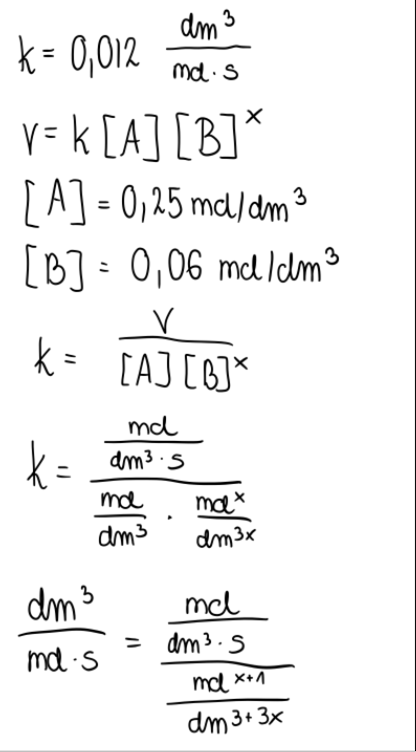 k = 0,012 dm³/mol·s
v = k[A][B]ˣ
[A] = 0,25 mol/dm³
[B] = 0,06 mol/dm³
k = v/[A][B]ˣ
k = (mol/dm³·s)/(mol/dm³ · molˣ/dm³ˣ)
dm³/mol·s = (mol/dm³·s)/(molˣ⁺¹/dm³⁺³ˣ)